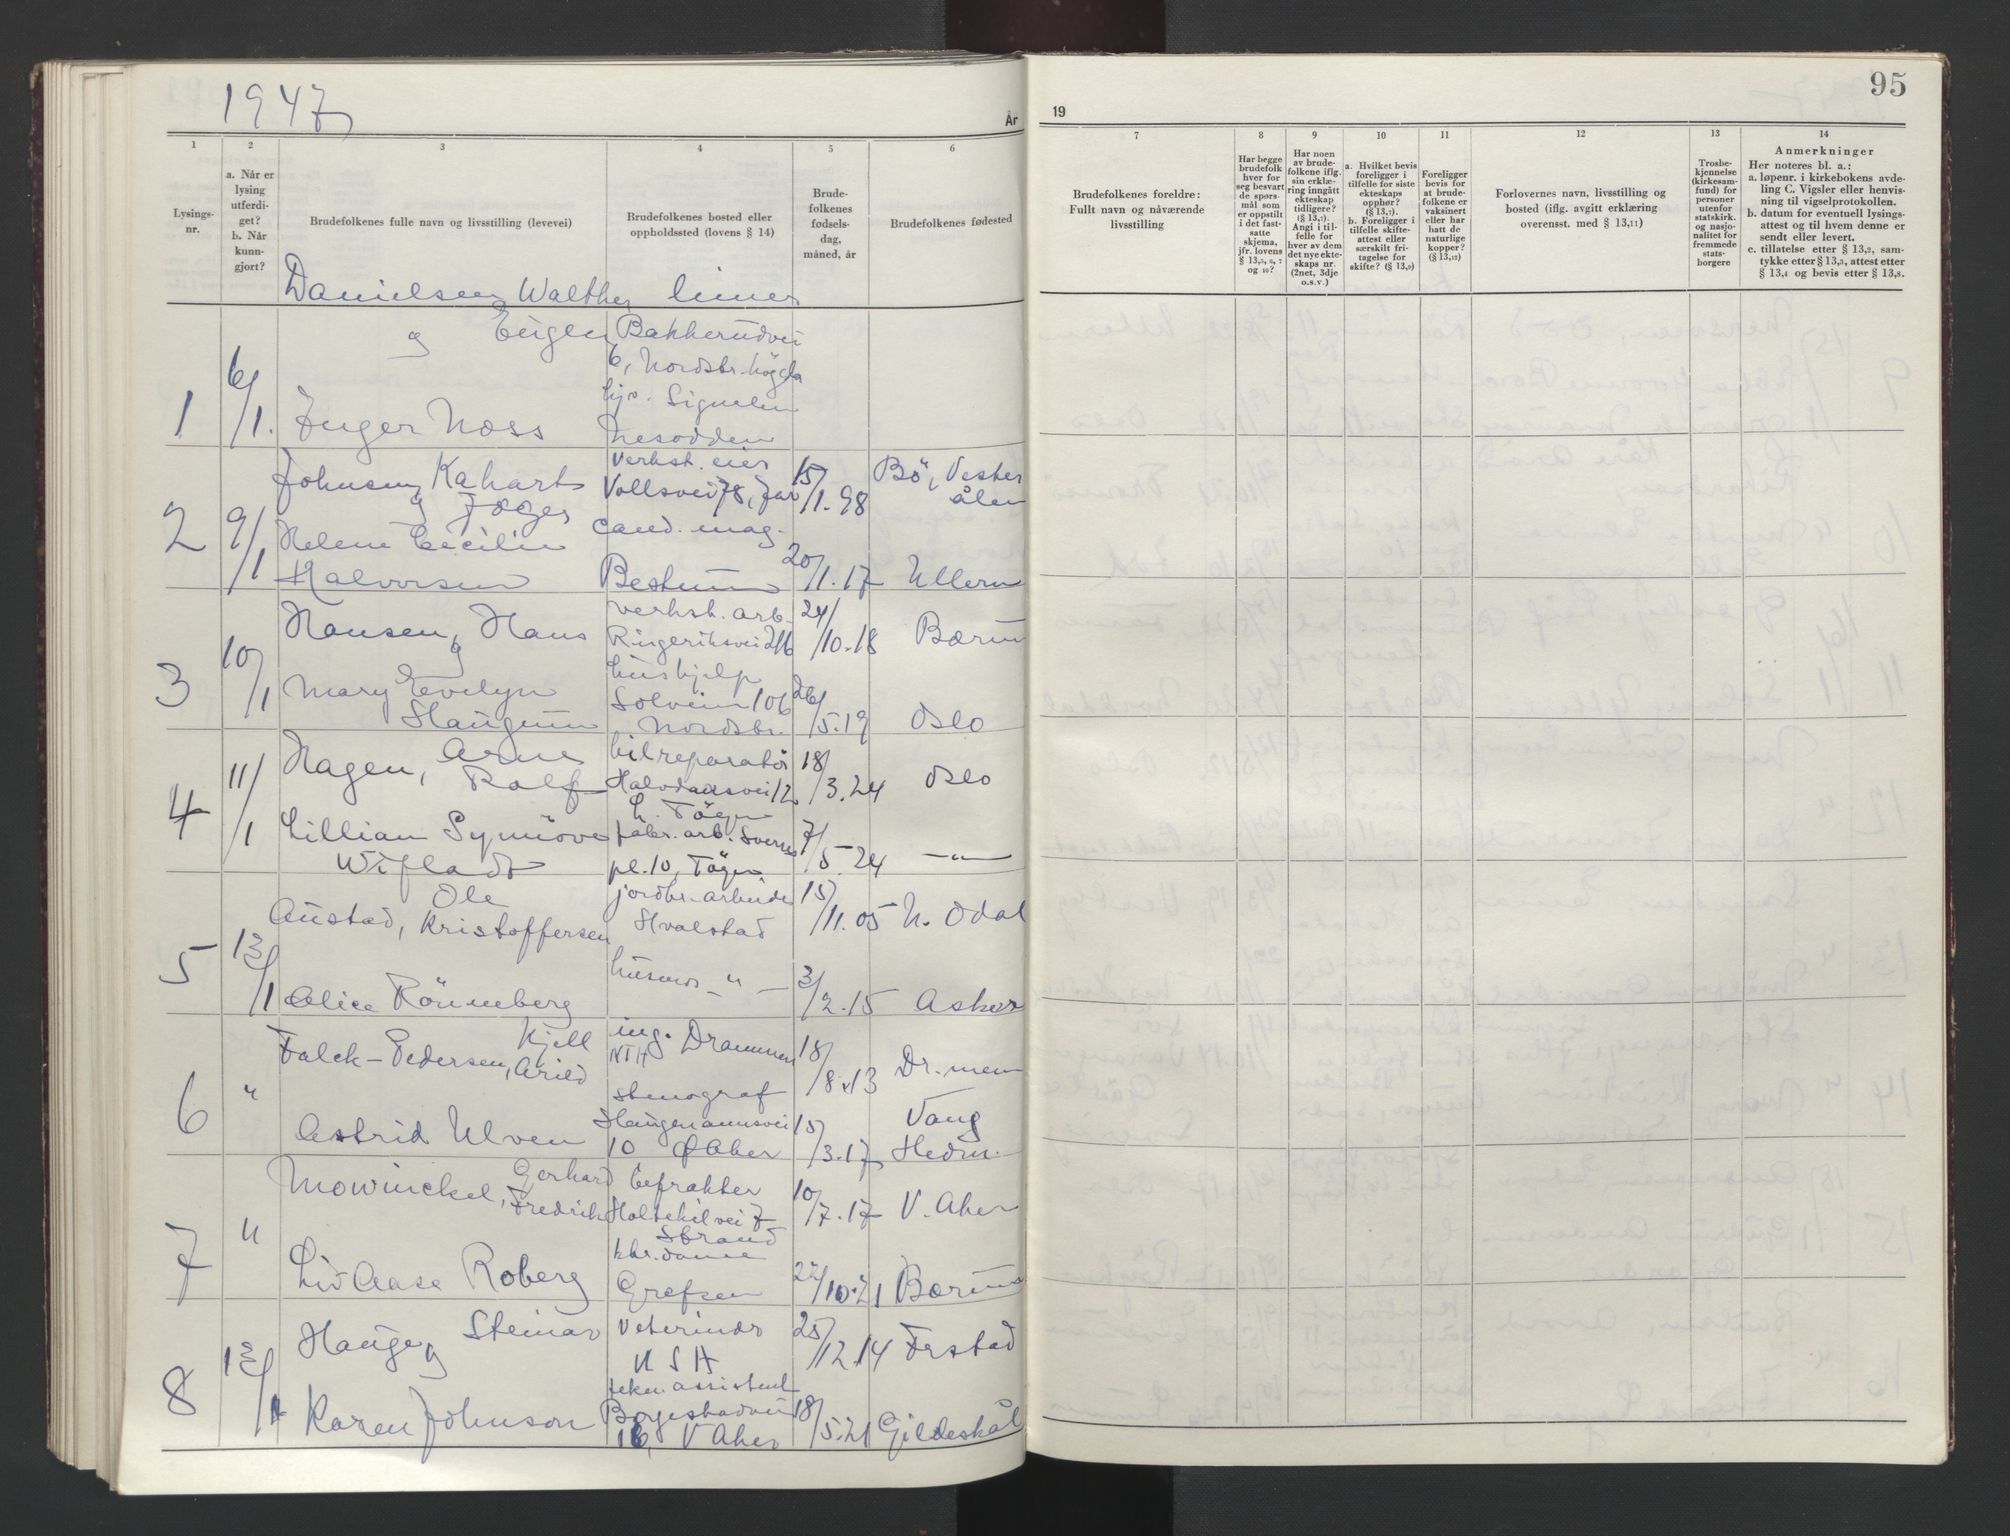 1947
År
1
2
3
4
5
6
Lysings-
nr.
a. Når er
lysing
utferdi-
get?
b. Når
kunn-
gjort?
Brudefolkenes fulle navn og livsstilling (levevei)
Brudefolkenes bosted eller
oppholdssted (lovens § 14)
Brude-
folkenes
fødsels-
dag,
måned, år
Brudefolkenes fødested
Danielsen, Walther
og Eugen
Bakkerudvei
6, Nordstr. högda
1
6/1.
Inger Næss
hjv. Signalen
Nesodden
2
9/1
Johnsen, Kahart
og Jæger
Verkst. eier
Vollsvei 78, Jar
15/1.98
Bö, Vester
ålen
Helene Cecilie
Halvorsen
cand. mag.
Bestum
20/1.17
Ullern
3
10/1
Hansen, Hans
og
verkst. arb.
Ringeriksvei 216
24/10.18
Bærum
Mary Evelyn
Haugum
hushjelp
Solveien 106
Nordstr.
26/5.19
Oslo
4
11/1
Hagen, Arne
Rolf
bilreparatör
Halvdansvei 12
L. Töyen
18/3.24
Oslo
Lillian Synnöve
Wifladt
fabr. arb. Sverres
pl. 10, Töyen
7/5.24
— " —
5
13/1
Austad, Ole
Kristoffersen
jordbr. arbeider
Hvalstad
15/11.05
N. Odal
Alice Rönneberg
husmor — " —
3/2.15
Asker
6
"
Falck-Pedersen, Kjell
Arild
ing. Drammen
NTH
18/8.13
Dr.men
Astrid Ulven
stenograf
Haugermannsvei
10 Ø Aker
15/3.17
Vang
Hedm.
7
"
Mowinckel, Gerhard
Fredrik
befrakter
Holtekilvei 7
Strand
10/7.17
V. Aker
Liv Aase Roberg
ktr. dame
Grefsen
22/10.21
Bærum
8
13/1
Hauge, Steinar
og
Veterinær
N S H
25/12.14
Ørstad
Karen Johnson
tekn. assistent
Borgestadvei
16, V Aker
18/5.21
Gildeskål
19
95
7
8
9
10
11
12
13
14
Brudefolkenes foreldre:
Fullt navn og nåværende
livsstilling
Har begge
brudefolk
hver for
seg besvart
de spørs-
mål som
er oppstilt
i det fast-
satte
skjema,
jfr. lovens
§ 13,5, 6, 7
og 10?
Har noen
av brude-
folkene iflg.
sin erklæ-
ring inngått
ekteskap
tidligere?
(§ 13,7).
Angi i til-
felle for
hver av dem
det nye ekte-
skaps nr.
(2net, 3dje
o.s.v.)
a. Hvilket bevis
foreligger i
tilfelle for siste
ekteskaps
opphør?
(§ 13,7).
b. Foreligger i
tilfelle skifte-
attest eller
særskilt fri-
tagelse for
skifte? (§ 13,9)
Foreligger
bevis for
at brude-
folkene er
vaksinert
eller har
hatt de
naturlige
kopper?
(§ 13,12)
Forlovernes navn, livsstilling og
bosted (iflg. avgitt erklæring
overensst. med § 13,11)
Trosbe-
kjennelse
(kirkesam-
fund) for
personer
utenfor
statskirk.
og nasjo-
nalitet for
fremmede
stats-
borgere
Anmerkninger
Her noteres bl. a.:
a. løpenr. i kirkebokens avde-
ling C. Vigsler eller henvis-
ning til vigselprotokollen.
b. datum for eventuell lysings-
attest og til hvem denne er
sendt eller levert.
c. tillatelse etter § 13,2, sam-
tykke etter § 13,3, attest etter
§ 13,4 og bevis etter § 13,8.